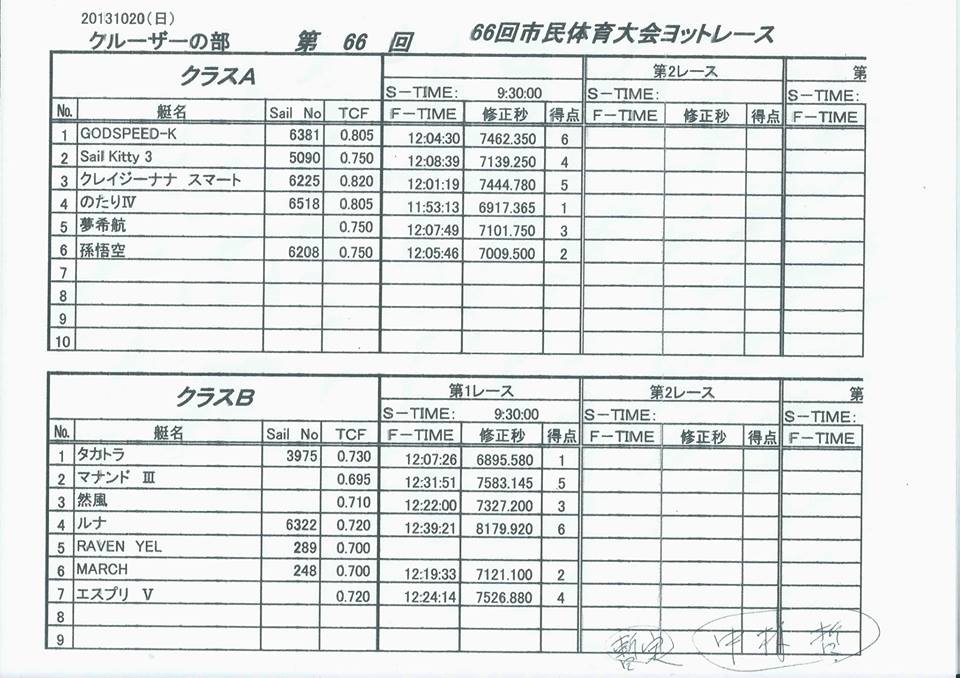 20131020(日)
クルーザーの部 第 66 回 66回市民体育大会ヨットレース
クラスA 第2レース 第
S-TIME: 9:30:00 S-TIME: S-TIME:
No. 艇名 Sail No TCF F-TIME 修正秒 得点 F-TIME 修正秒 得点 F-TIME
1 GODSPEED-K 6381 0.805 12:04:30 7462.350 6
2 Sail Kitty 3 5090 0.750 12:08:39 7139.250 4
3 クレイジーナナ スマート 6225 0.820 12:01:19 7444.780 5
4 のたりⅣ 6518 0.805 11:53:13 6917.365 1
5 夢希航 0.750 12:07:49 7101.750 3
6 孫悟空 6208 0.750 12:05:46 7009.500 2
7
8
9
10
クラスB 第1レース 第2レース 第
S-TIME: 9:30:00 S-TIME: S-TIME:
No. 艇名 Sail No TCF F-TIME 修正秒 得点 F-TIME 修正秒 得点 F-TIME
1 タカトラ 3975 0.730 12:07:26 6895.580 1
2 マナンド Ⅲ 0.695 12:31:51 7583.145 5
3 然風 0.710 12:22:00 7327.200 3
4 ルナ 6322 0.720 12:39:21 8179.920 6
5 RAVEN YEL 289 0.700
6 MARCH 248 0.700 12:19:33 7121.100 2
7 エスプリ Ⅴ 0.720 12:24:14 7526.880 4
8
9
暫定